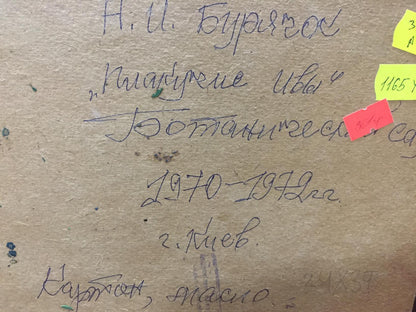 Н. И. Бурячок
„Плакучие ивы"
Ботанический са
1970-1972гг.
г. Киев.
Картон, масло.
1165